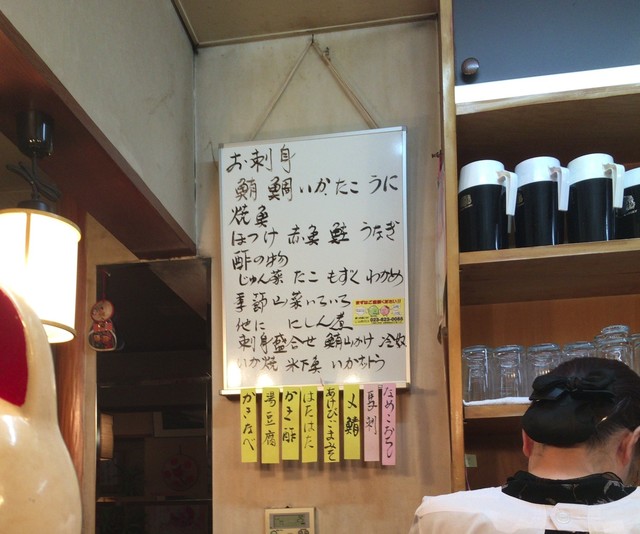 お刺身
鮪 鯛 いか.たこ うに
焼魚
ほっけ 赤魚 鮭 うなぎ
酢の物
じゅん菜 たこ もずく わかめ
季節山菜いろいろ
他に にしん煮
刺身盛合せ 鮪山かけ 冷奴
いか焼 氷下魚
023-623-0088
かきなべ
湯豆腐
かき酢
はたはた
あけびごまみそ
〆鯖
馬刺
なめこおろし